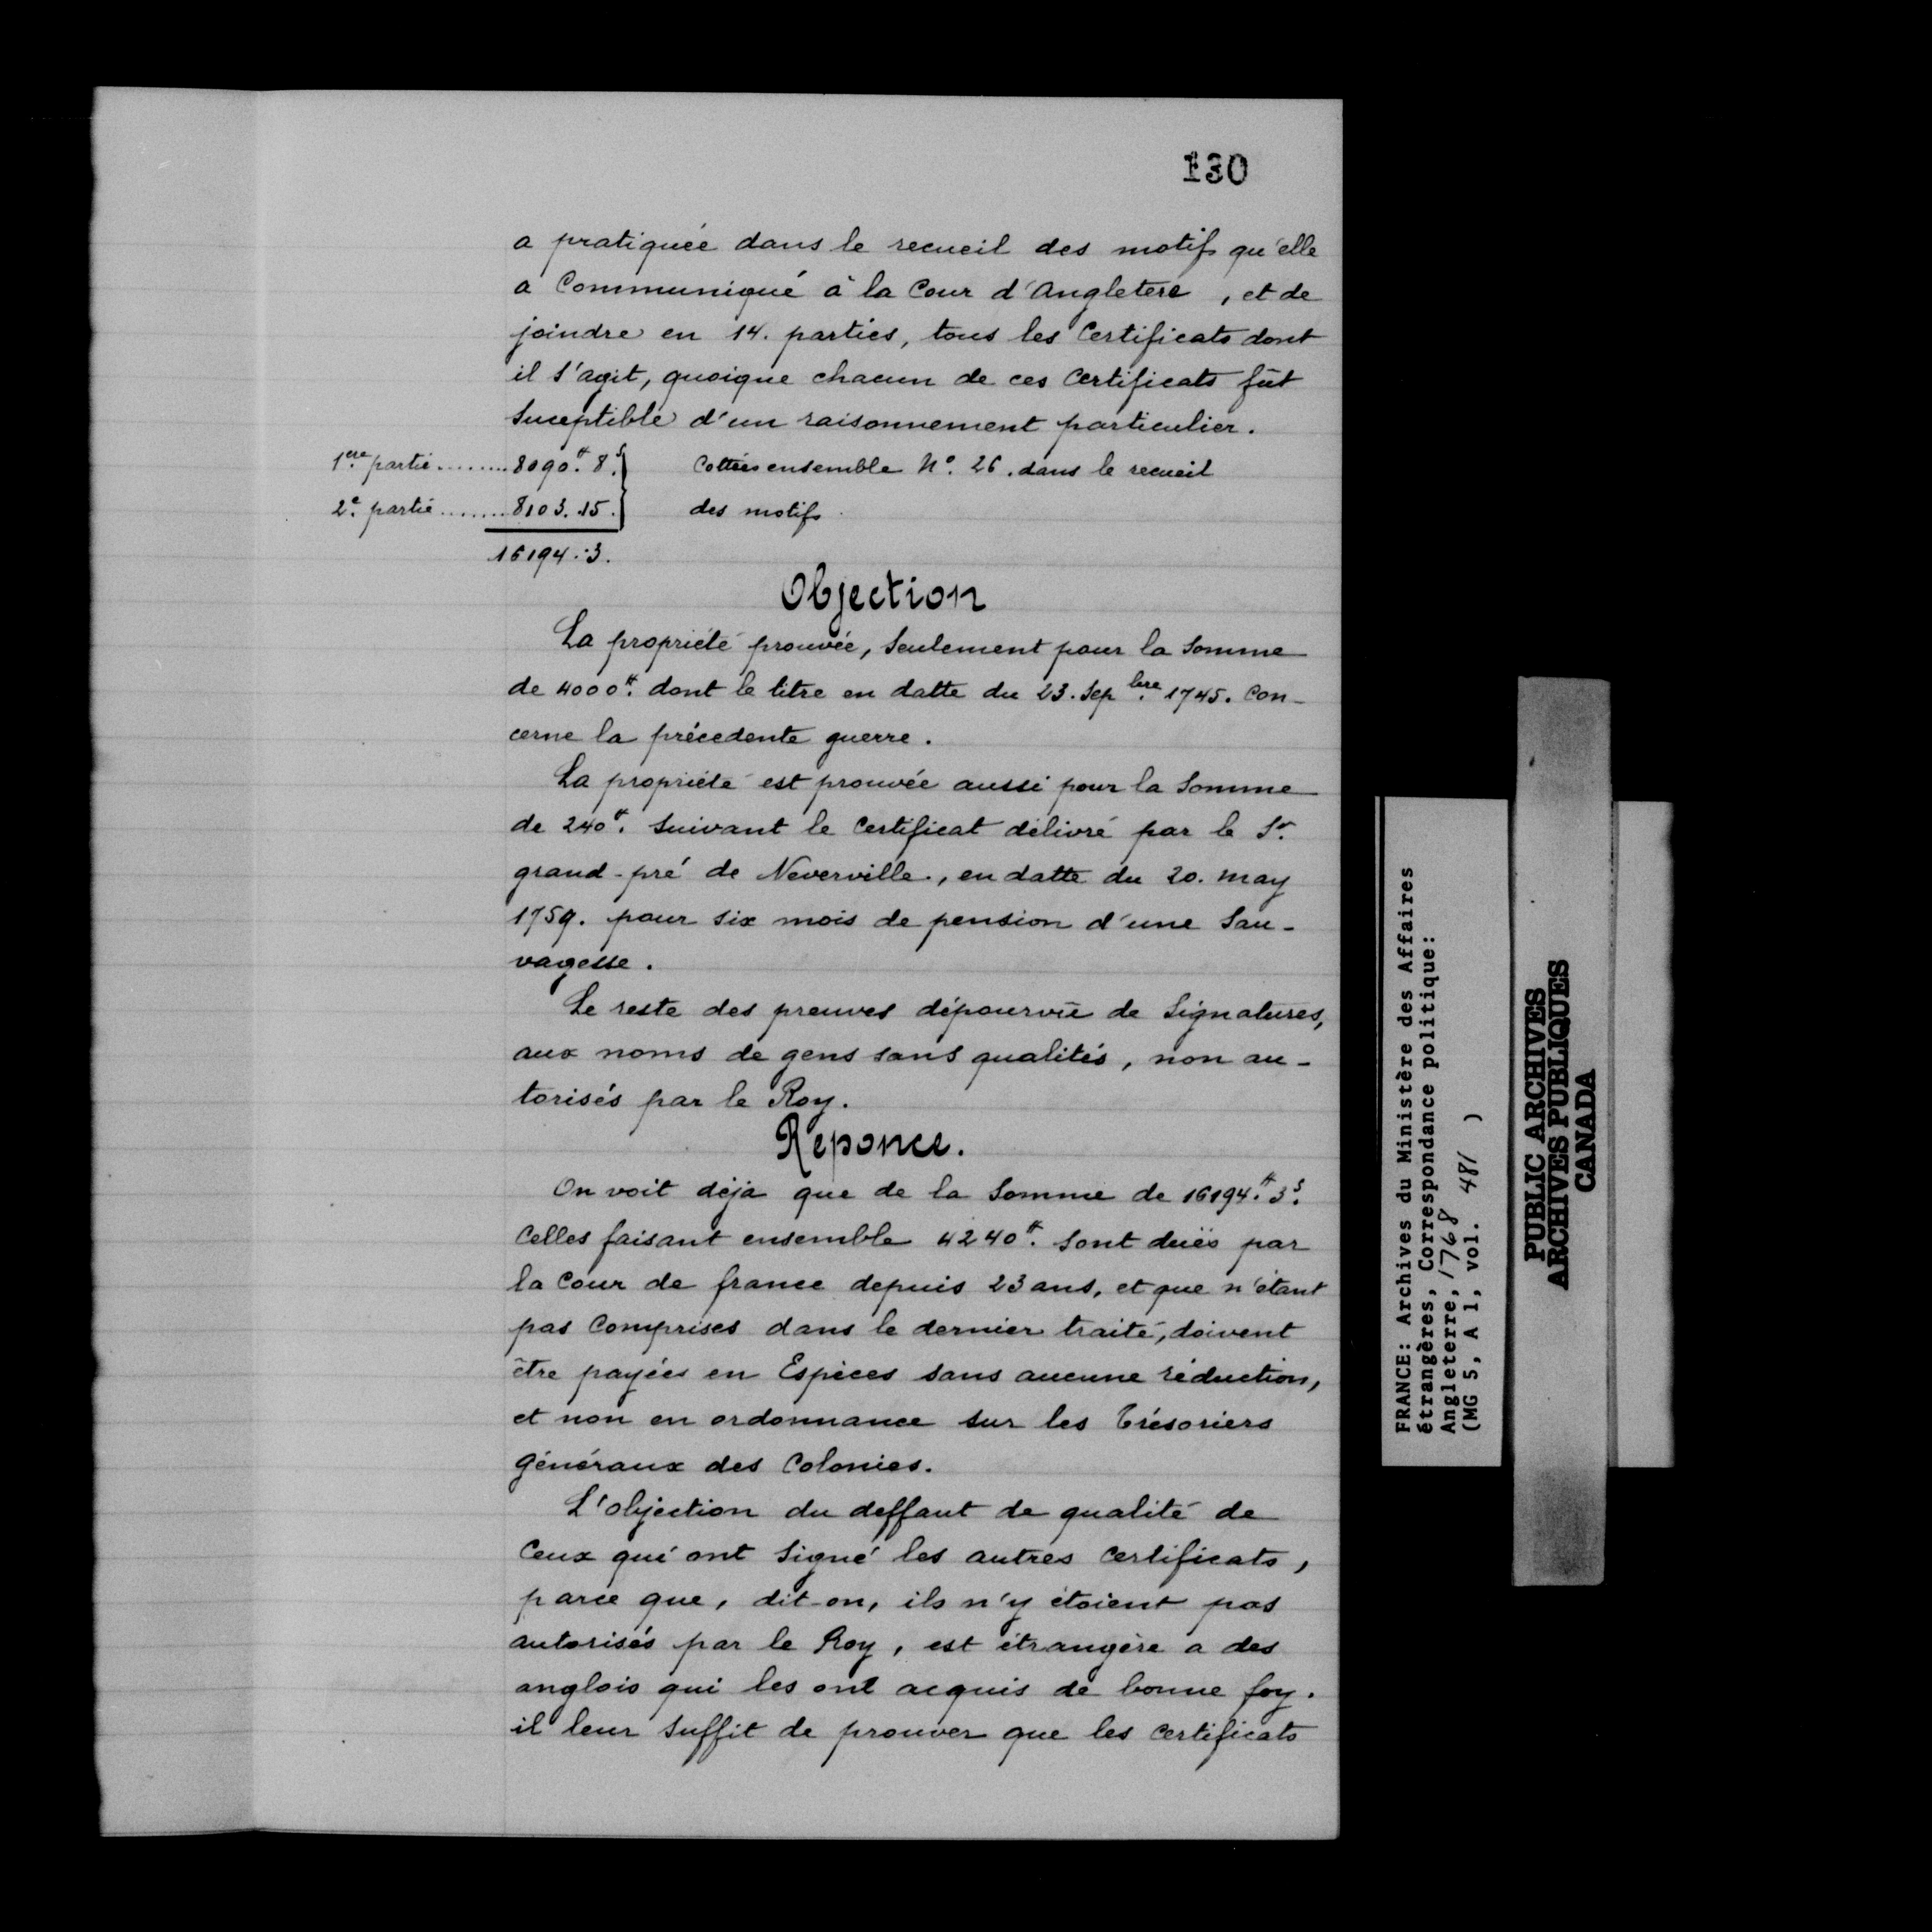 130
a pratiquée dans le recueil des motifs qu'elle
a Communiqué à la Cour d'Angletere, et de
joindre en 14. parties, tous les Certificats dont
il s'agit, quoique chacun de ces Certificats fût
suceptible d'un raisonnement particulier.
1ere partie ........ 8090.# 8.s } Cottées ensemble No. 26. dans le recueil
2e. partie ....... 8103. 15. } des motifs.
16194..3.
Objection
La propriété prouvée, seulement pour la somme
de 4000#. dont le titre en datte du 23. Sepbre. 1745. con-
cerne la précedente guerre.
La propriété est prouvée aussi pour la somme
de 240#. suivant le Certificat délivré par le Sr.
grand-pré de Neverville., en datte du 20. may
1759. pour six mois de pension d'une Sau-
vagesse.
Le reste des preuves dépourvüe de Signatures,
aux noms de gens sans qualités, non au-
torisés par le Roy.
Réponce.
On voit déja que de la somme de 16194.# 3s.
Celles faisant ensemble 4240#. sont duës par
la Cour de france depuis 23 ans, et que n'étant
pas Comprises dans le dernier traité, doivent
être payées en Espèces sans aucune réduction,
et non en ordonnance sur les Trésoriers
généraux des Colonies.
L'objection du deffaut de qualité de
Ceux qui ont Signé les autres Certificats,
parce que, dit-on, ils n'y étoient pas
autorisés par le Roy, est étrangère a des
anglois qui les ont acquis de bonne foy.
il leur suffit de prouver que les Certificats
FRANCE: Archives du Ministère des Affaires
étrangères, Correspondance politique:
Angleterre, 1768
(MG 5, A 1, vol. 481 )
PUBLIC ARCHIVES
ARCHIVES PUBLIQUES
CANADA